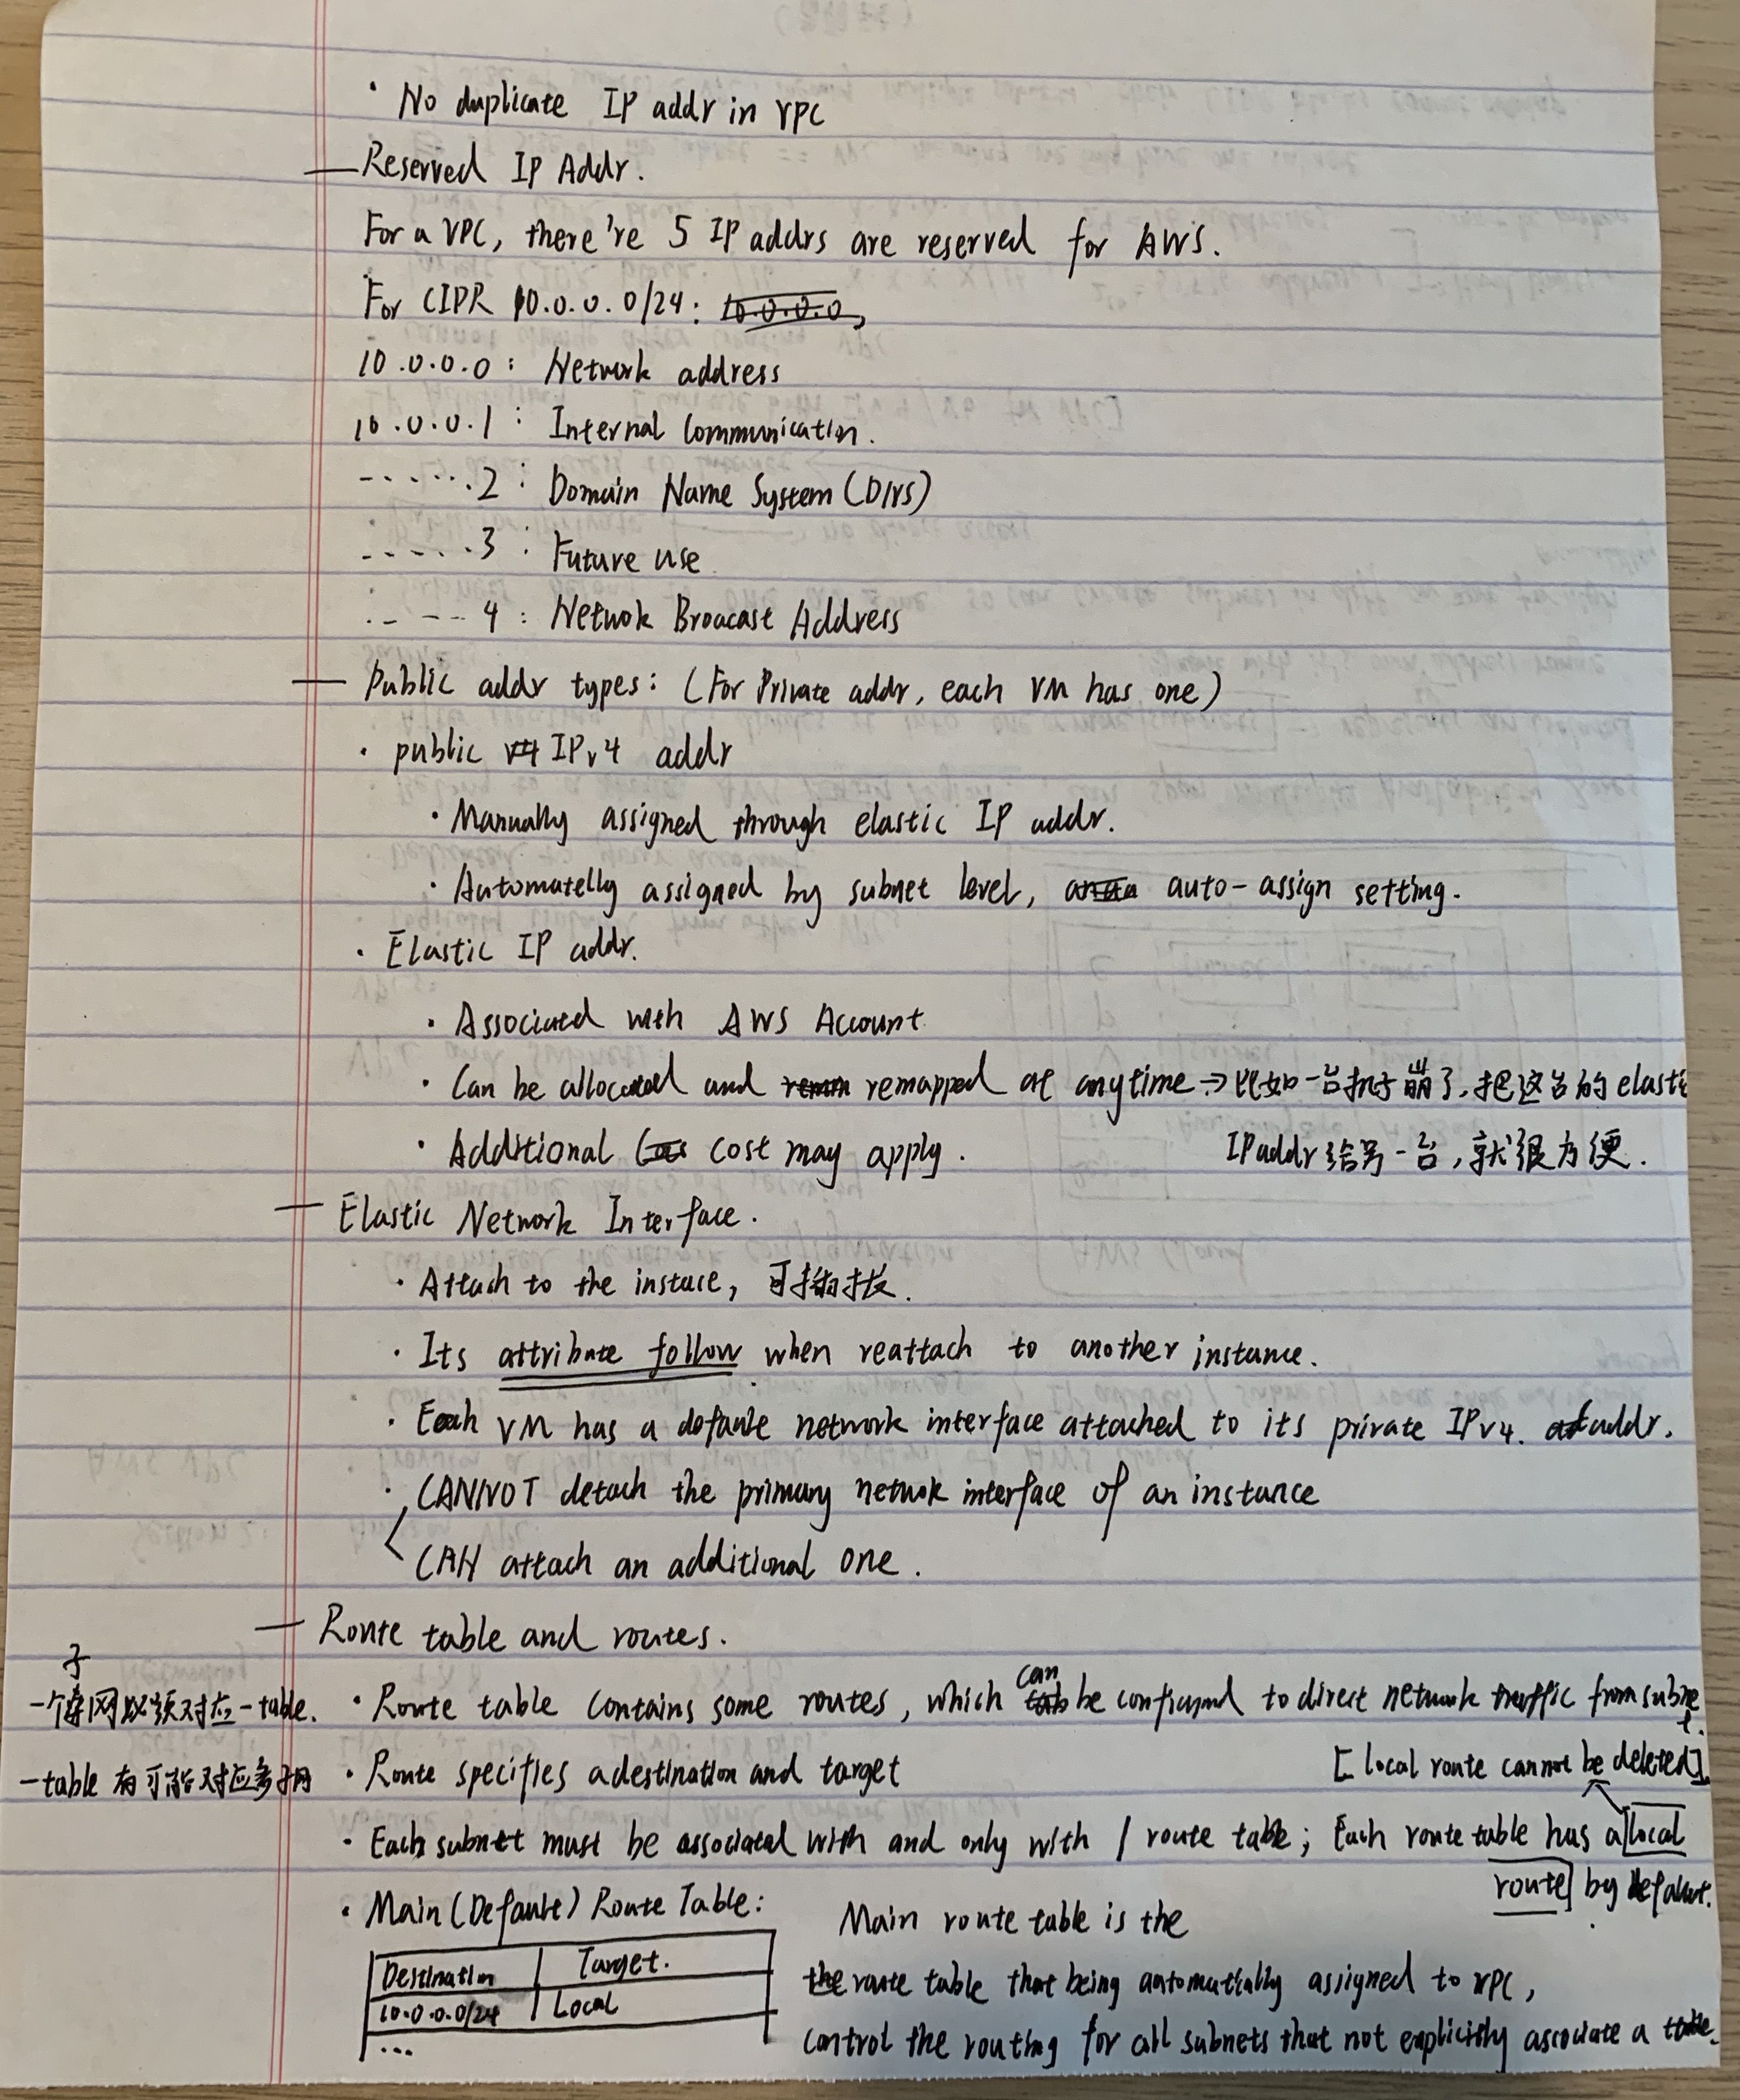 · No duplicate IP addr in VPC
— Reserved IP Addr.
For a VPC, there're 5 IP addrs are reserved for AWS.
For CIDR 10.0.0.0/24: 10.0.0.0,
10.0.0.0: Network address
10.0.0.1: Internal Communication.
------.2: Domain Name System (DNS)
-----.3: Future use
.----4: Netwok Broacast Address
— Public addr types: (For Private addr, each VM has one)
· public v4 IPv4 addr
· Manually assigned through elastic IP addr.
· Automatelly assigned by subnet level, auto-assign setting.
· Elastic IP addr.
· Associated with AWS Account
· Can be allocated and remapped at anytime → 比如一台机子崩了,把这台的elastic
· Additional Cost may apply. IP addr 给另一台,就很方便.
— Elastic Network Interface.
· Attach to the instace, 可拔.
· Its attribute follow when reattach to another instance.
· Each VM has a default network interface attached to its private IPv4. addr.
· CANNOT detach the primary netwok interface of an instance
CAN attach an additional one.
— Route table and routes.
一个子网必须对应一table. · Route table contains some routes, which can be configured to direct network traffic from subnet.
一table 有可能对应多子网 · Route specifies a destination and target [local route cannot be deleted]
· Each subnet must be associated with and only with 1 route table; Each route table has a local
route by default.
· Main (Default) Route Table: Main route table is the
Destination Target. the route table that being automatically assigned to VPC,
10.0.0.0/24 Local
... control the routing for all subnets that not explicitly associate a table.